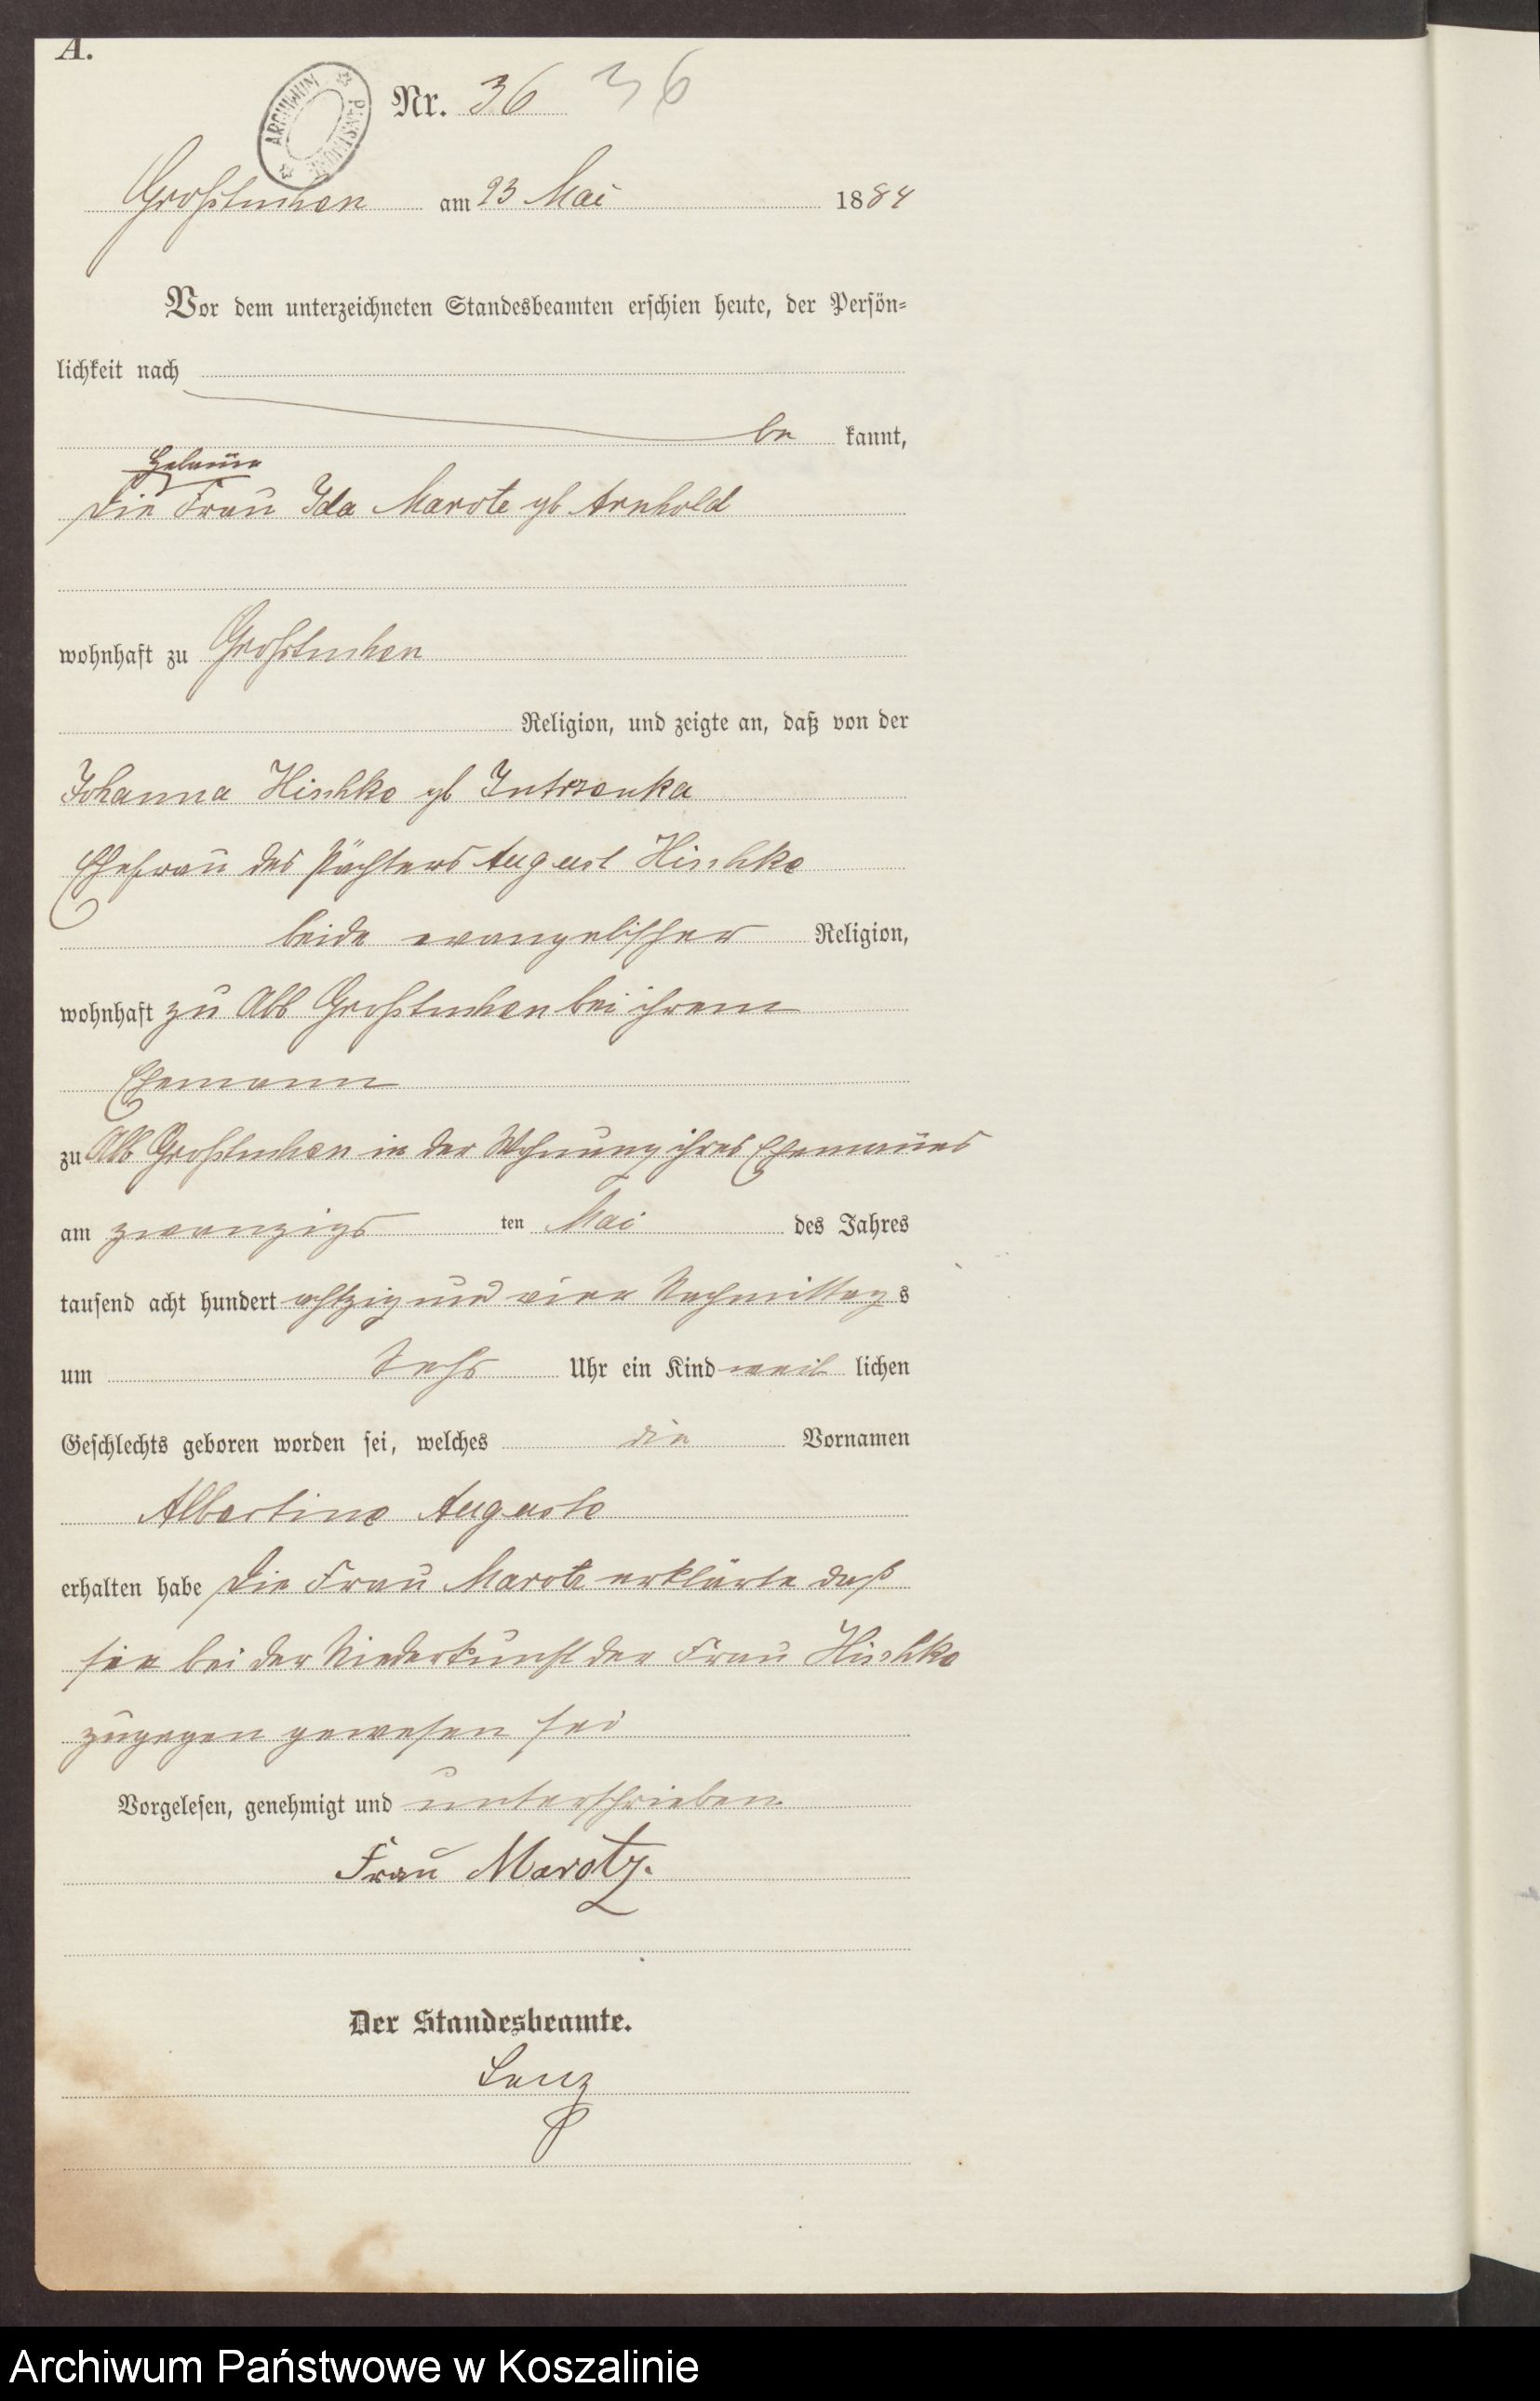 A.
ARCHIWUM PAŃSTWOWE
Nr. 36 36
Großtuchen am 23 Mai 1884
Vor dem unterzeichneten Standesbeamten erschien heute, der Persön-
lichkeit nach
be kannt,
Hebamme
die Frau Ida Marotz gb Arnhold
wohnhaft zu Großtuchen
Religion, und zeigte an, daß von der
Johanna Hischke gb Jutrzenka
Ehefrau des Pächters August Hischke
beide evangelischer Religion,
wohnhaft zu Abb Großtuchen bei ihrem
Ehemann
zu Abb Großtuchen in der Wohnung ihres Ehemannes
am zwanzigs ten Mai des Jahres
tausend acht hundert achtzig und vier Nachmittag s
um sechs Uhr ein Kind weib lichen
Geschlechts geboren worden sei, welches die Vornamen
Albertine Auguste
erhalten habe die Frau Marotz erklärte daß
sie bei der Niederkunft der Frau Hischke
zugegen gewesen sei
Vorgelesen, genehmigt und unterschrieben
Frau Marotz.
Der Standesbeamte.
Lenz
Archiwum Państwowe w Koszalinie